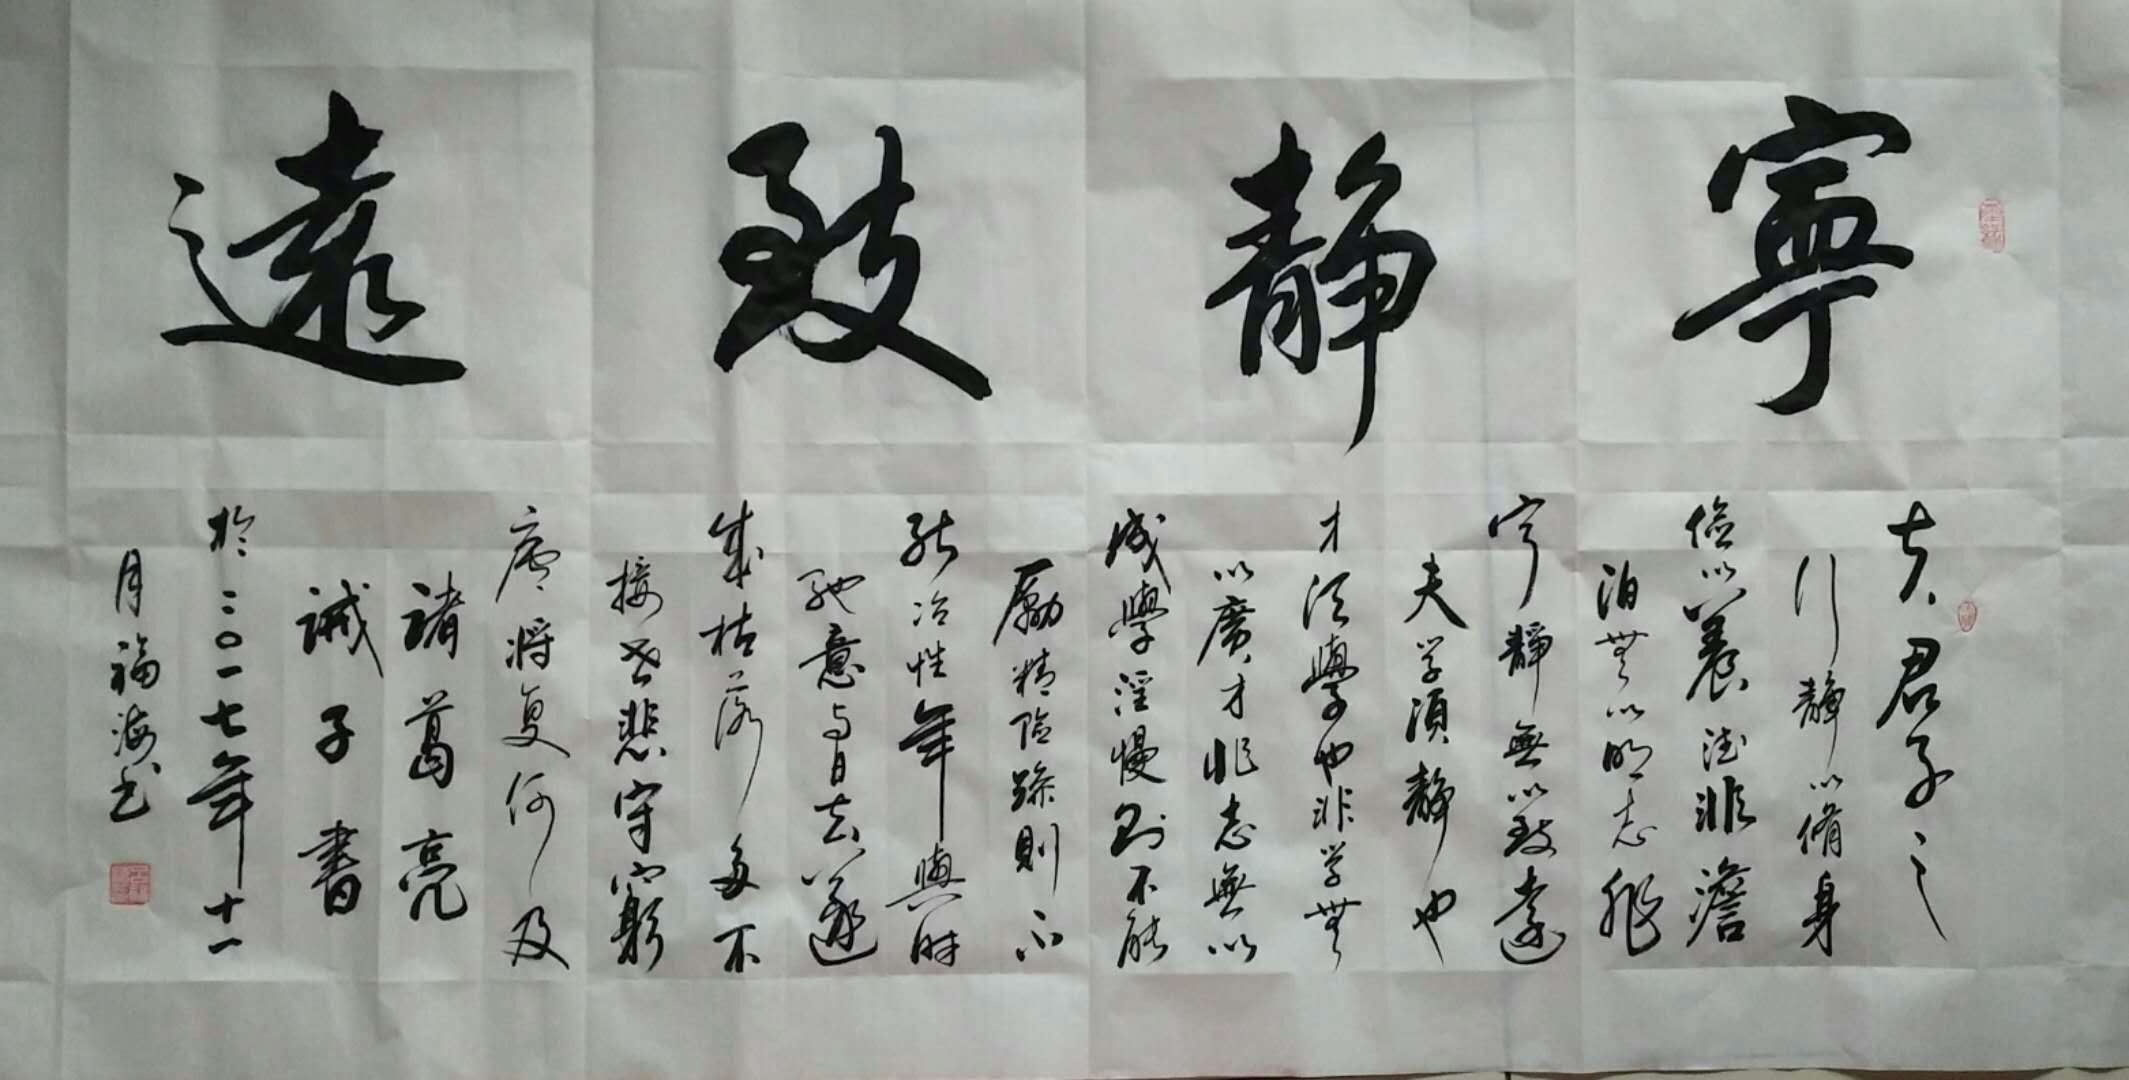 寧靜致遠
夫君子之
行靜以脩身
儉以養德非澹
泊無以明志非
宁靜無以致遠
夫学須靜也
才須學也非学無
以廣才非志無以
成學淫慢則不能
勵精险躁則不
能冶性年與时
馳意与日去遂
成枯落多不
接世悲守窮
廬將复何及
諸葛亮
诫子書
於二〇一七年十一
月福海书